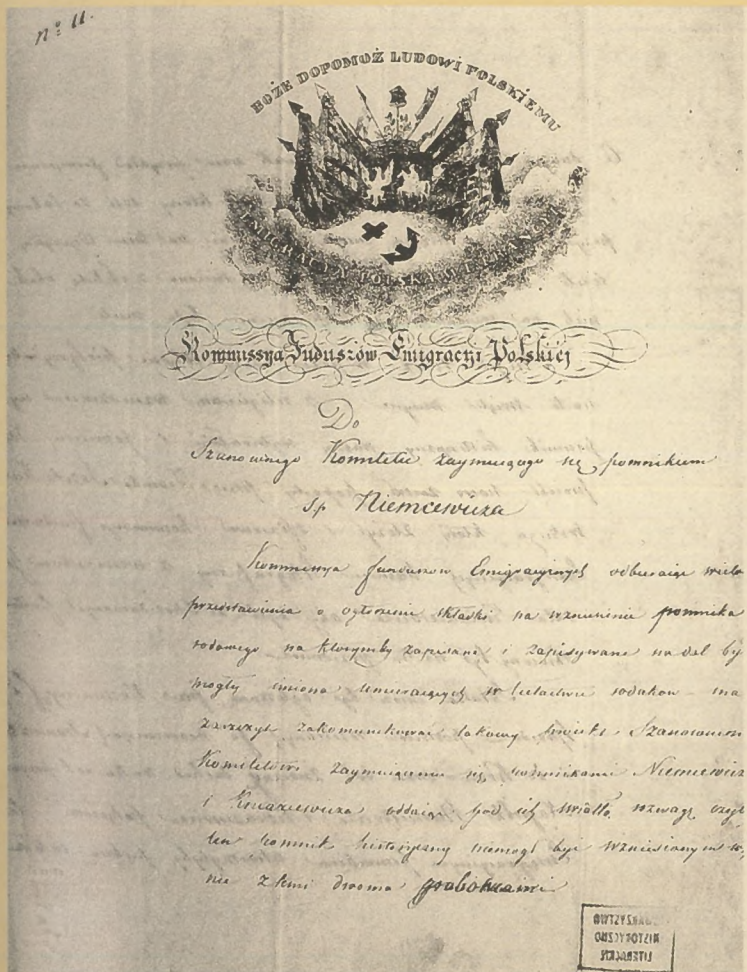 Nº 11.
BOŻE DOPOMOŻ LUDOWI POLSKIEMU
EMIGRACYA POLSKA WE FRANCYI
Kommissya Funduszów Emigracyi Polskiéj
Do
Szanownego Komitetu zaymuiącego się pomnikiem
ś.p Niemcewicza
Kommissya funduszow Emigracyinych odbieraiąc wiele
przedstawienia o ogłoszenie składki na wzniesienie pomnika
rodowego na którymby zapisane i zapisywane na dal by
mogły imiona umieraiących w tułactwie rodakow - ma
zaszczyt zakomunikować takowy Szanownem
Komitetowi zaymuiącemu się pomnikami Niemcewicz
i Kniaziewicza oddaiąc pod ich światłą rozwagę czyl
ten pomnik historyczny niemogł być wzniesionym w
nie z temi dwoma grobowcami
TOWARZYSTWO
HISTORYCZNO
LITERACKIE